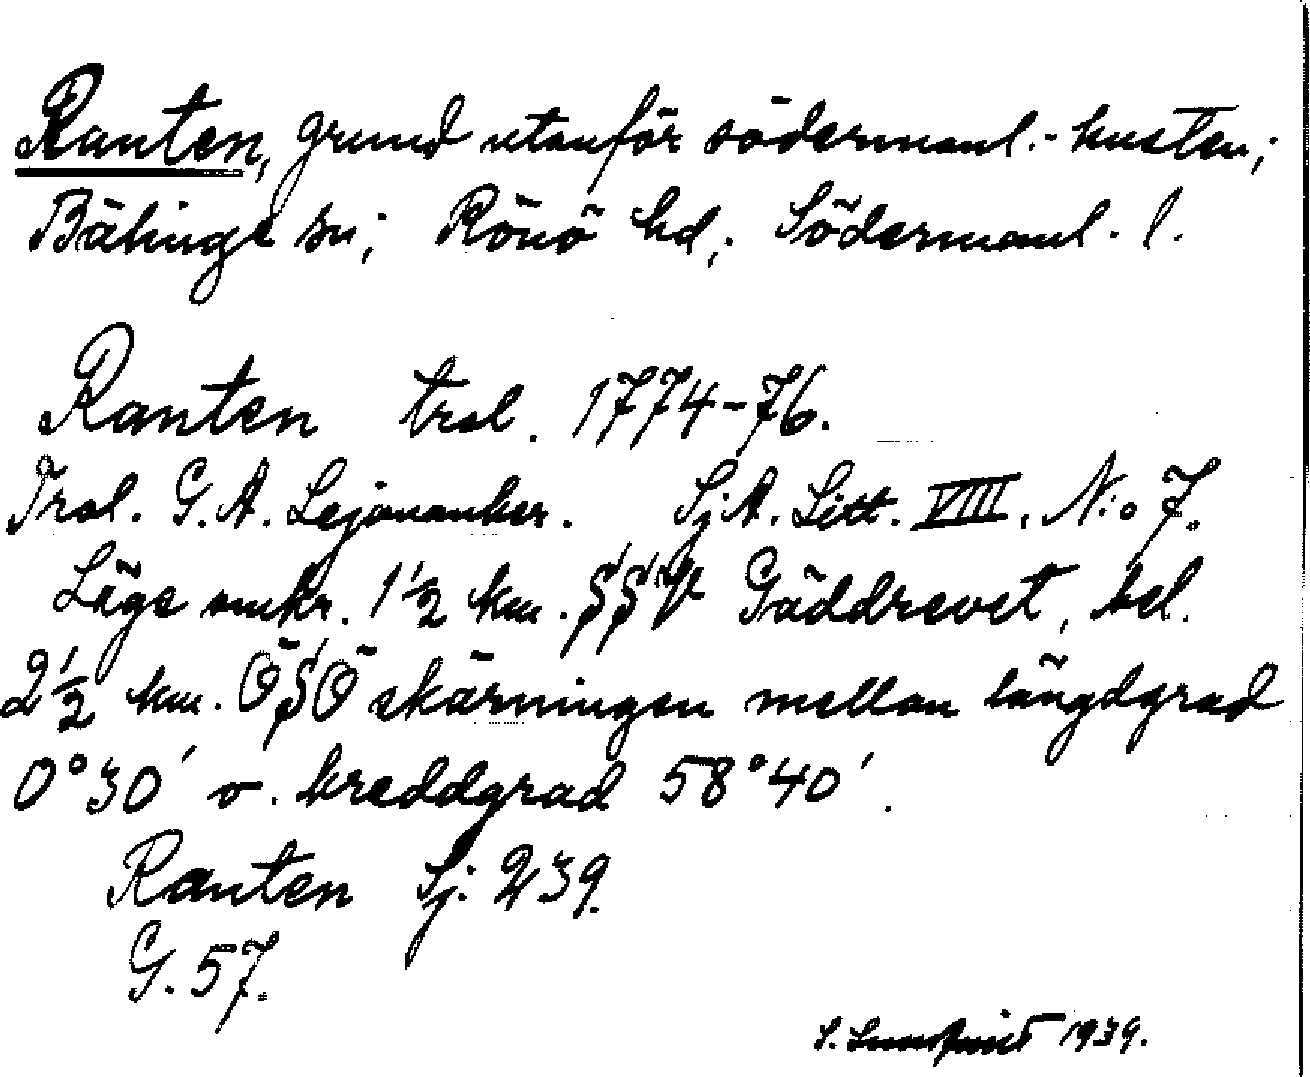 Ranten, grund utanför södermanl.-kusten;
Bälinge sn; Rönö hd; Södermanl. l.
Ranten trol. 1774-76.
Trol. G. A. Lejonanker. Sj.A. Litt. VIII. N:o 7.
Läge omkr. 1 1/2 km. SSV Gäddrevet, bel.
2 1/2 km. ÖSÖ skärningen mellan längdgrad
0°30' o. breddgrad 58°40'.
Ranten Sj. 239.
G. 57.
S. Lundqvist 1939.